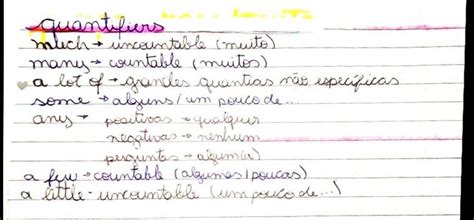 quantifiers
much → uncountable (muito)
many → countable (muitos)
a lot of → grandes quantias não específicas
some → alguns/um pouco de...
any → positivas → qualquer
negativas → nenhum
perguntas → algum(a)
a few → countable (algumas/poucas)
a little - uncountable (um pouco de...)